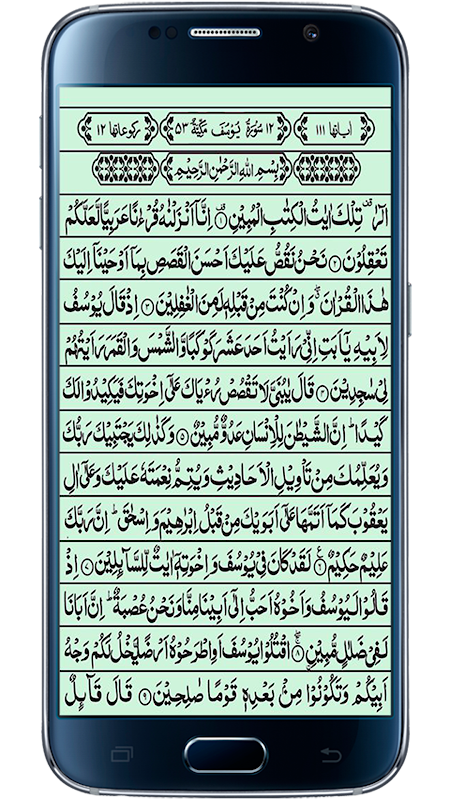 SAMSUNG
اٰیاتها ١١١ ١٢ سُوْرَةُ يُوْسُفَ مَكِّيَّةٌ ٥٣ رکوعاتها ١٢
بِسْمِ اللّٰهِ الرَّحْمٰنِ الرَّحِيْمِ
الٓرٰ ۫ تِلْكَ اٰيٰتُ الْكِتٰبِ الْمُبِيْنِ ۟ ١ اِنَّاۤ اَنْزَلْنٰهُ قُرْءٰنًا عَرَبِيًّا لَّعَلَّكُمْ
تَعْقِلُوْنَ ٢ نَحْنُ نَقُصُّ عَلَيْكَ اَحْسَنَ الْقَصَصِ بِمَاۤ اَوْحَيْنَاۤ اِلَيْكَ
هٰذَا الْقُرْاٰنَ ۖ وَاِنْ كُنْتَ مِنْ قَبْلِهٖ لَمِنَ الْغٰفِلِيْنَ ٣ اِذْ قَالَ يُوْسُفُ
لِاَبِيْهِ يٰۤاَبَتِ اِنِّيْ رَاَيْتُ اَحَدَ عَشَرَ كَوْكَبًا وَّالشَّمْسَ وَالْقَمَرَ رَاَيْتُهُمْ
لِيْ سٰجِدِيْنَ ٤ قَالَ يٰبُنَيَّ لَا تَقْصُصْ رُءْيَاكَ عَلٰۤى اِخْوَتِكَ فَيَكِيْدُوْا لَكَ
كَيْدًا ؕ اِنَّ الشَّيْطٰنَ لِلْاِنْسَانِ عَدُوٌّ مُّبِيْنٌ ٥ وَكَذٰلِكَ يَجْتَبِيْكَ رَبُّكَ
وَيُعَلِّمُكَ مِنْ تَاْوِيْلِ الْاَحَادِيْثِ وَيُتِمُّ نِعْمَتَهٗ عَلَيْكَ وَعَلٰۤى اٰلِ
يَعْقُوْبَ كَمَاۤ اَتَمَّهَا عَلٰۤى اَبَوَيْكَ مِنْ قَبْلُ اِبْرٰهِيْمَ وَاِسْحٰقَ ؕ اِنَّ رَبَّكَ
عَلِيْمٌ حَكِيْمٌ ٦ لَقَدْ كَانَ فِيْ يُوْسُفَ وَاِخْوَتِهٖۤ اٰيٰتٌ لِّلسَّآىِٕلِيْنَ ٧ اِذْ
قَالُوْا لَيُوْسُفُ وَاَخُوْهُ اَحَبُّ اِلٰۤى اَبِيْنَا مِنَّا وَنَحْنُ عُصْبَةٌ ؕ اِنَّ اَبَانَا
لَفِيْ ضَلٰلٍ مُّبِيْنِ ٨ اقْتُلُوْا يُوْسُفَ اَوِ اطْرَحُوْهُ اَرْضًا يَّخْلُ لَكُمْ وَجْهُ
اَبِيْكُمْ وَتَكُوْنُوْا مِنْۢ بَعْدِهٖ قَوْمًا صٰلِحِيْنَ ٩ قَالَ قَآىِٕلٌ